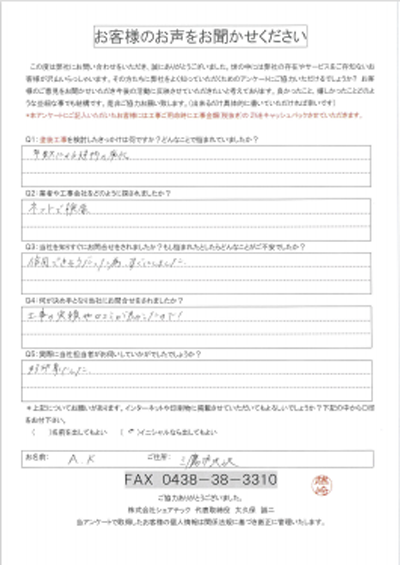 お客様のお声をお聞かせください
この度は弊社にお問い合わせをいただき、誠にありがとうございました。世の中には弊社の存在やサービスをご存知ないお
客様が沢山いらっしゃいます。その方たちに弊社をよく知っていただくためのアンケートにご協力いただけるでしょうか？お客
様のご意見をお聞かせいただき今後の活動に反映させていただきたいと考えております。良かったこと、嬉しかったことどのよ
うな些細な事でも結構です。是非ご協力お願い致します。(出来るだけ具体的に書いていただければ幸いです)
*本アンケートにご記入いただいたお客様には工事ご用命時に工事金額(税抜き)の 2%をキャッシュバックさせていただきます。
Q1:塗装工事を検討したきっかけは何ですか？どんなことで悩まれていましたか？
年数による建物の劣化
Q2:業者や工事会社をどのように探されましたか？
ネットで検索
Q3:当社を知りすぐにお問合せをされましたか？もし悩まれたとしたらどんなことがご不安でしたか？
信用できそうだった為、すぐにしました。
Q4:何が決め手となり当社にお問合せをされましたか？
工事の実績や口コミが良かったので！
Q5:実際に当社担当者がお伺いしていかがでしたでしょうか？
好印象でした。
*上記についてお願いがあります。インターネットや印刷物に掲載させていただいてもよろしいでしょうか？下記の中から〇印
をお付下さい。
( )名前を出してもよい ( )イニシャルなら出してもよい
お名前: A.K ご住所:
FAX 0438-38-3310
ご協力ありがとうございました。
株式会社シェアテック 代表取締役 大久保 誠二
当アンケートで取得したお客様の個人情報は関係法規に基づき厳正に管理いたします。